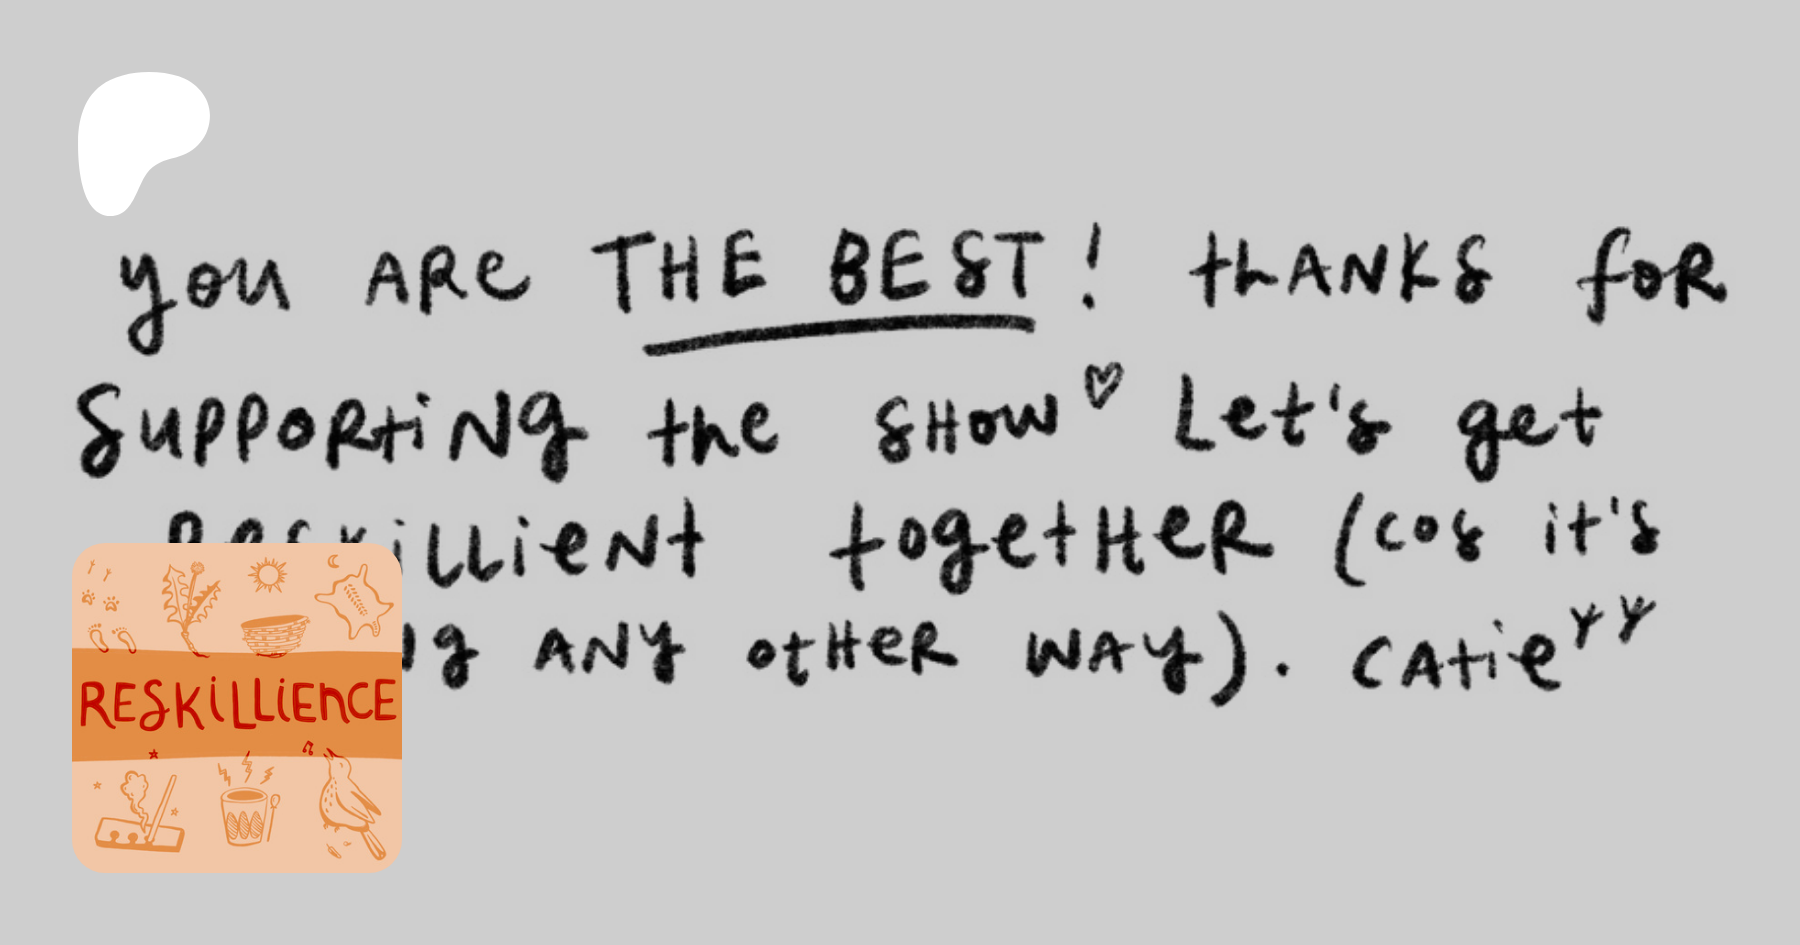 you ARe THE BEST! thANKS foR
SuppoRtiNg the SHow♡ Let's get
ReskiLLieNt togetHeR (cos it's
ANY otHeR WAY). CAtie
RESKiLLiEnCE